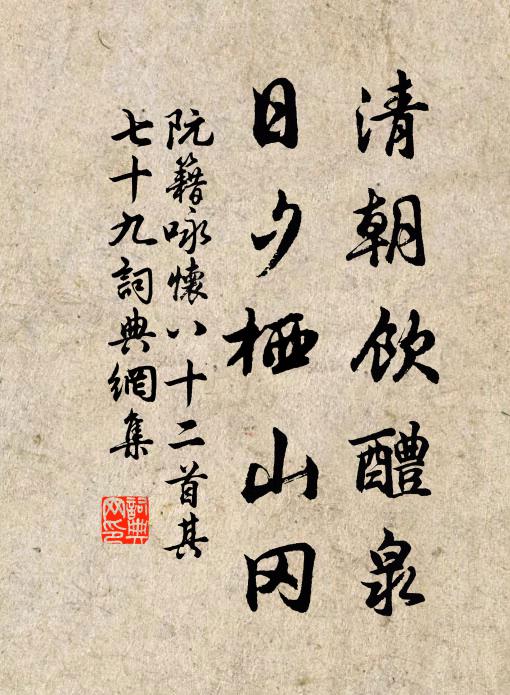 清朝飲醴泉
日夕栖山冈
阮籍咏懷八十二首其
七十九詞典網集
詞典
网印